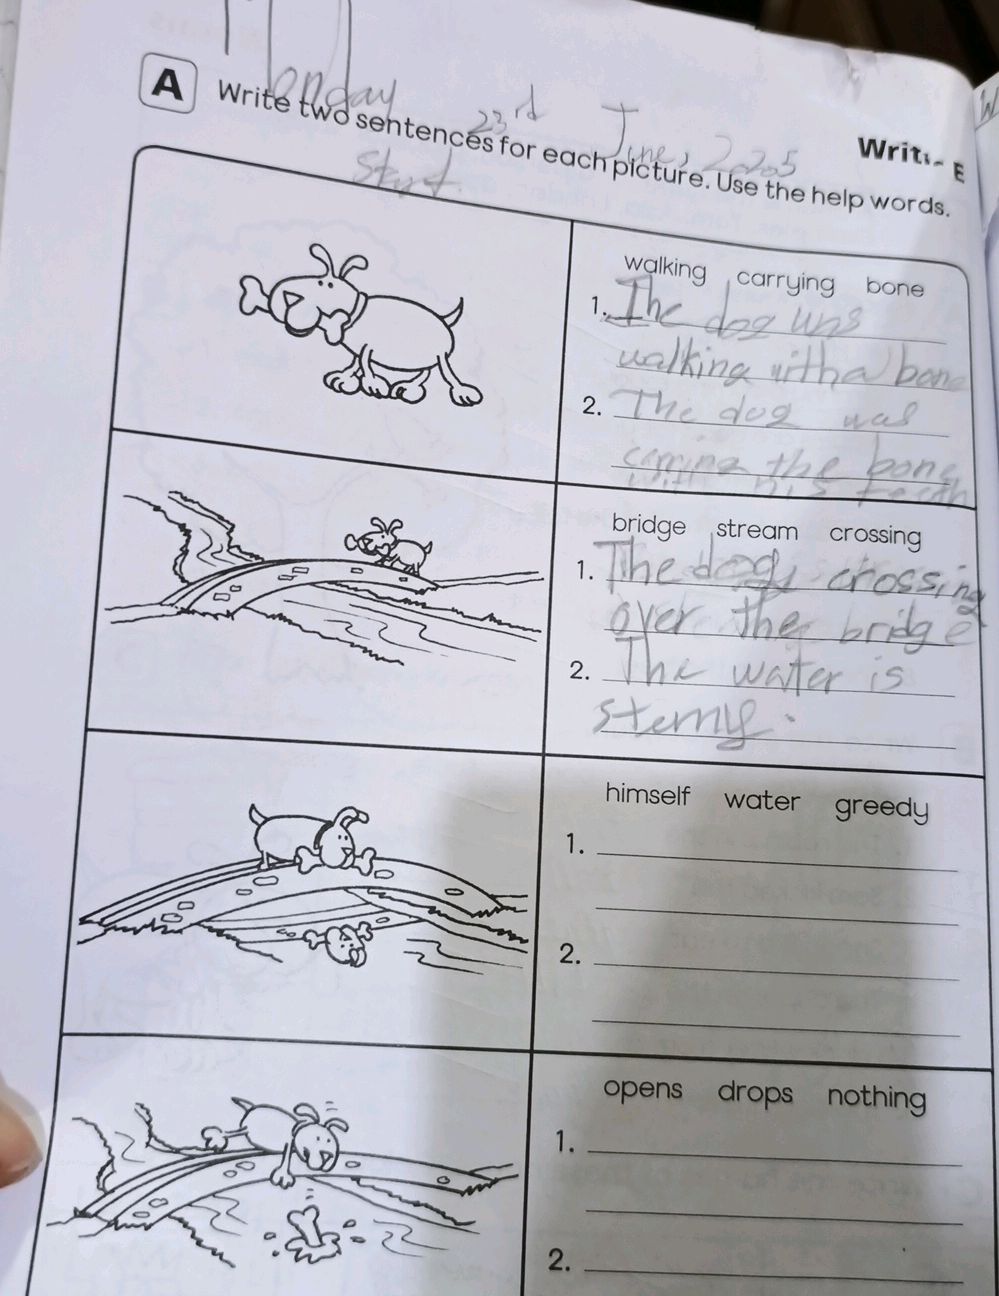 Monday 23rd June, 2025
Writi
E
A Write two sentences for each picture. Use the help words.
Start.
walking carrying bone
1. The dog was
walking with a bone
2. The dog was
the bone
with his teeth
bridge stream crossing
1. The dog crossing
over the bridge
2. The water is
himself water greedy
1.
2.
opens drops nothing
1.
2.